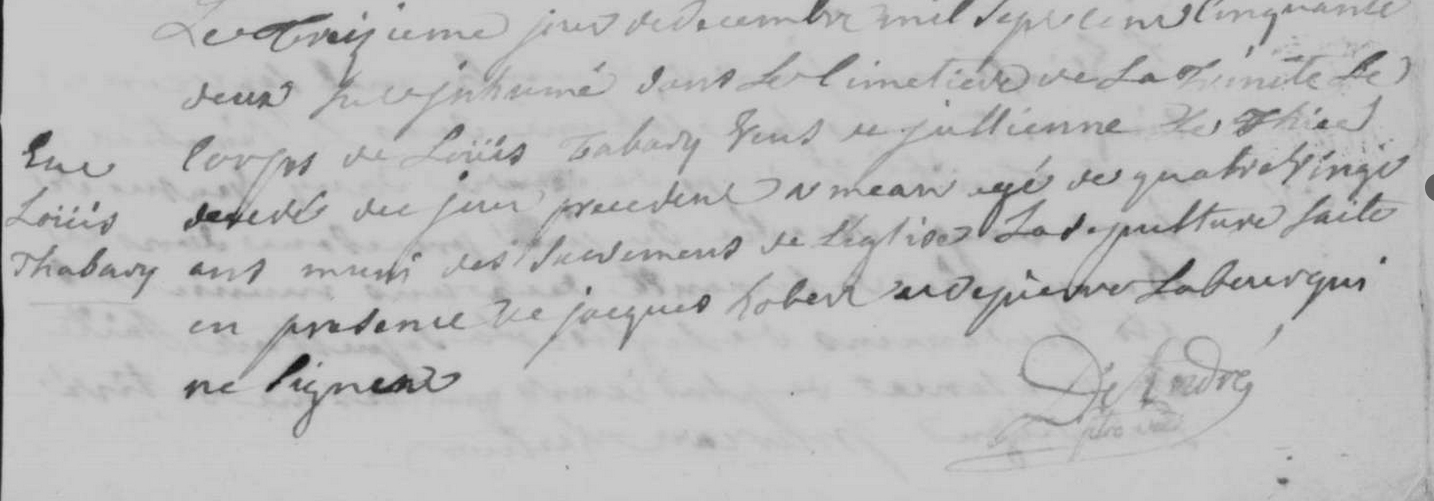 Le Treizieme jour de decembre mil sept cent cinquante
deux fut inhumé dans Le Cimetiere de La trinité Le
Corps de Loüis Tabary veuf de jullienne
Loüis
Thabary
decedé du jour precedent a agé de quatre Vingt
ans muni des Sacremens de L'eglise La sepulture faite
en presence de jacques Robert et de pierre Labour qui
ne Signent
De André
ptre